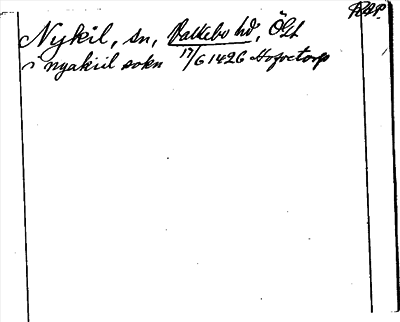 RAP.
Nykil, sn, Valkebo hd, Ögl
i nyakiil sokn 17/6 1426 Hofvetorp